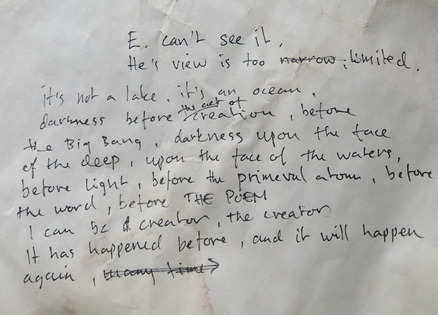 E. can't see it.
He's view is too narrow, limited.
it's not a lake, it's an ocean,
the act of
darkness before creation, before
the Big Bang, darkness upon the face
of the deep, upon the face of the waters,
before light, before the primeval atom, before
the word, before THE POEM
I can be a creator, the creator
It has happened before, and it will happen
again, many times